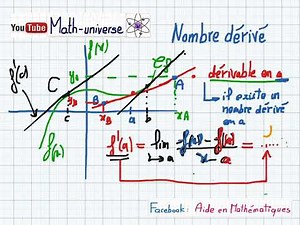 You Tube Math-universe
Nombre dérivé
f(x)
f'(c)
C
y₀
A
dérivable en a
B
il existe un
nombre dérivé
en a
c
x_B
a
b
x_A
f(x)
f'(a) = lim f(x) - f(a) / x - a = ....
x→a
Facebook: Aide en Mathématiques